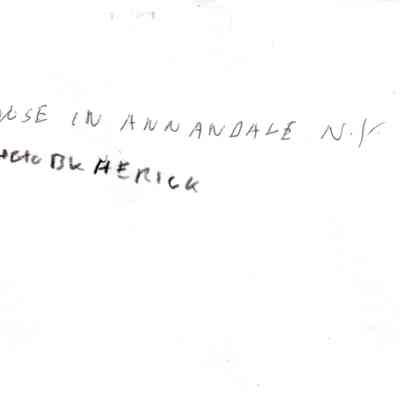 USE IN ANNANDALE N.Y.
PHOTO BY HERICK